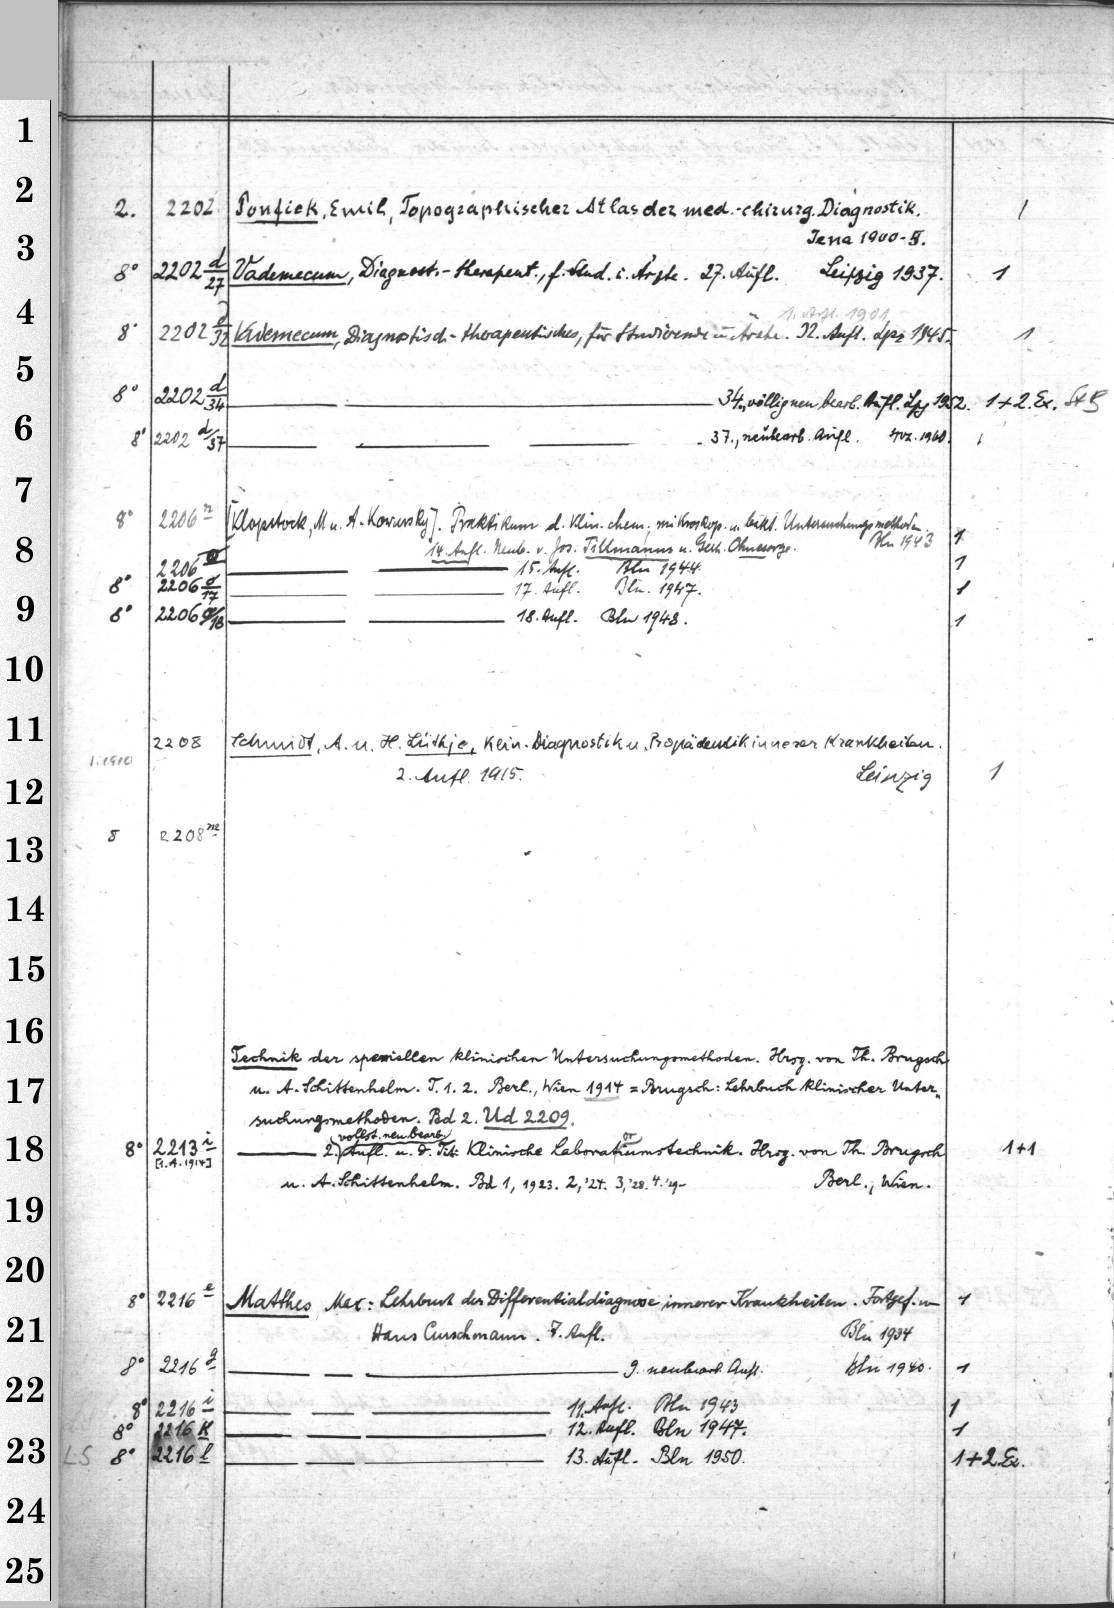 1
2
2. 2202 Ponfick, Emil, Topographischer Atlas der med.-chirurg. Diagnostik. 1
Jena 1900-
3
8° 2202 d/27 Vademecum, Diagnost.-therapeut., f. Stud. u. Ärzte. 27. Aufl. Leipzig 1937. 1
4
1. Afl. 1901
8° 2202 d/32 Vademecum, Diagnostisch-therapeutisches, für Studierende u. Ärzte. 32. Aufl. Lpz 1945. 1
5
8° 2202 d/34 34., völlig neu bearb. Aufl. Lpz 1952. 1+2. Ex.
6
8° 2202 d/37 37., neubearb. Aufl. Lpz. 1960. 1
7
8° 2206 n [Klopstock, M u. A. Kowarsky]. Praktikum d. klin. chem., mikroskop. u. bakt. Untersuchungsmethoden.
Bln 1943 1
8
14. Aufl. Neub. v. Jos. Tillmanns u. Gerh. Ohnesorge.
2206 15. Aufl. Bln 1944 1
8° 2206 g/17 17. Aufl. Bln. 1947. 1
9
8° 2206 g/18 18. Aufl. Bln 1948. 1
10
11
2208 Schmidt, A. u. H. Lüthje, Klin. Diagnostik u. Propädeutik innerer Krankheiten.
1. 1910
2. Aufl. 1915. Leipzig 1
12
8 2208 m
13
14
15
16
Technik der speziellen klinischen Untersuchungsmethoden. Hrsg. von Th. Brugsch
17
u. A. Schittenhelm. T. 1. 2. Berl., Wien 1914 = Brugsch: Lehrbuch klinischer Unter-
suchungsmethoden. Bd 2. Ud 2209.
vollst. neubearb.
18
8° 2213 i 2. Aufl. u. d. Tit: Klinische Laboratoriumstechnik. Hrsg. von Th. Brugsch 1+1
[1. A. 1914]
u. A. Schittenhelm. Bd 1, 1923. 2, '24. 3, '28. 4. '29- Berl., Wien.
19
20
8° 2216 e Matthes, Max: Lehrbuch der Differentialdiagnose innerer Krankheiten. Fortgef. von 1
21
Hans Curschmann. 7. Aufl. Bln 1934
8° 2216 g 9. neubearb. Aufl. Bln 1940. 1
22
8° 2216 i 11. Aufl. Bln 1943 1
8° 2216 k 12. Aufl. Bln 1947. 1
23
LS 8° 2216 l 13. Aufl. Bln 1950. 1+2. Ex.
24
25